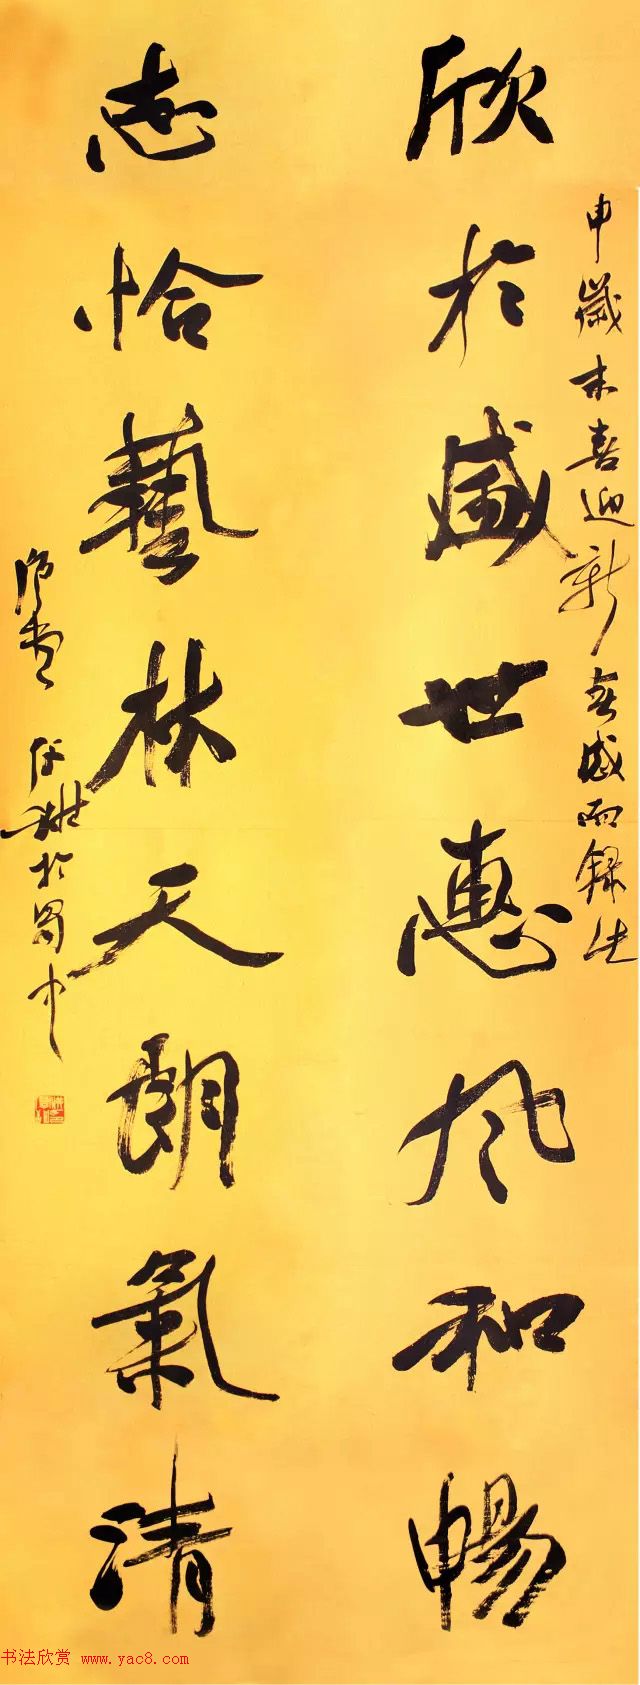 欣於盛世惠風和暢
申歲末喜迎新春感而錄此
志恰藝林天朗氣清
任雅於蜀中
书法欣赏 www.yac8.com